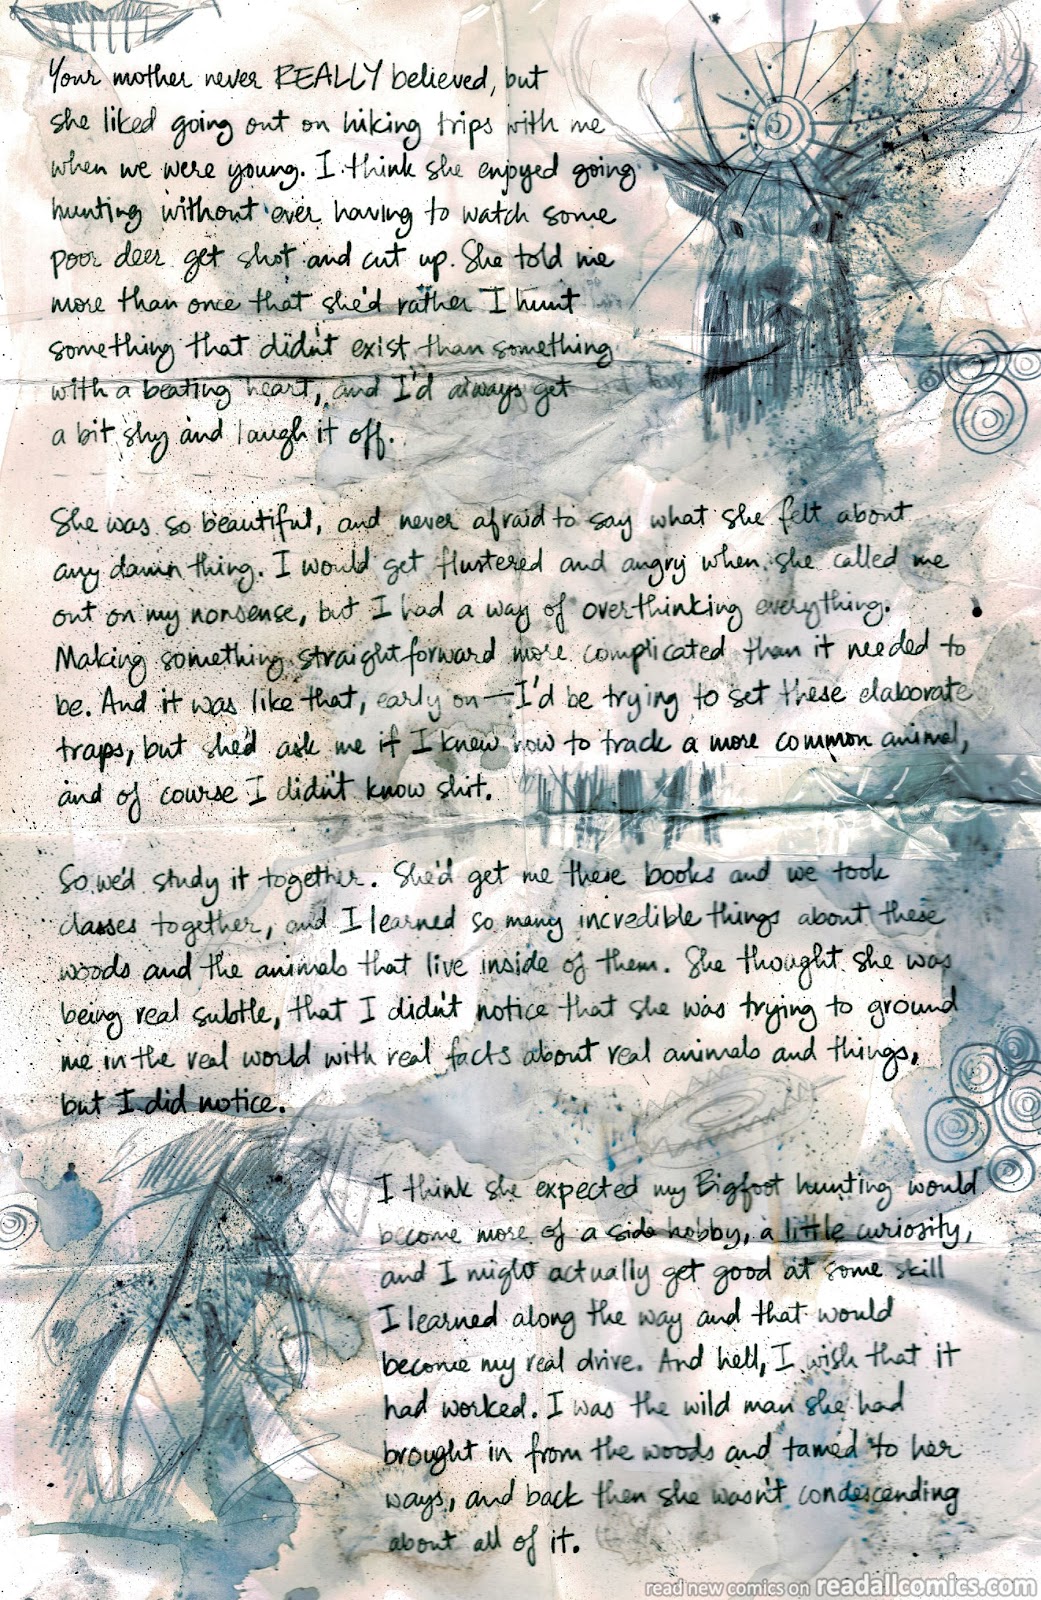 Your mother never REALLY believed, but
she liked going out on hiking trips with me
when we were young. I think she enjoyed going
hunting without ever having to watch some
poor deer get shot and cut up. She told me
more than once that she'd rather I hunt
something that didn't exist than something
with a beating heart, and I'd always get
a bit shy and laugh it off.
She was so beautiful, and never afraid to say what she felt about
any damn thing. I would get flustered and angry when she called me
out on my nonsense, but I had a way of overthinking everything.
Making something straightforward more complicated than it needed to
be. And it was like that, early on—I'd be trying to set these elaborate
traps, but she'd ask me if I knew how to track a more common animal,
and of course I didn't know shit.
So we'd study it together. She'd get me these books and we took
classes together, and I learned so many incredible things about these
woods and the animals that live inside of them. She thought she was
being real subtle, that I didn't notice that she was trying to ground
me in the real world with real facts about real animals and things,
but I did notice.
I think she expected my Bigfoot hunting would
become more of a side hobby, a little curiosity,
and I might actually get good at some skill
I learned along the way and that would
become my real drive. And hell, I wish that it
had worked. I was the wild man she had
brought in from the woods and tamed to her
ways, and back then she wasn't condescending
about all of it.
read new comics on readallcomics.com